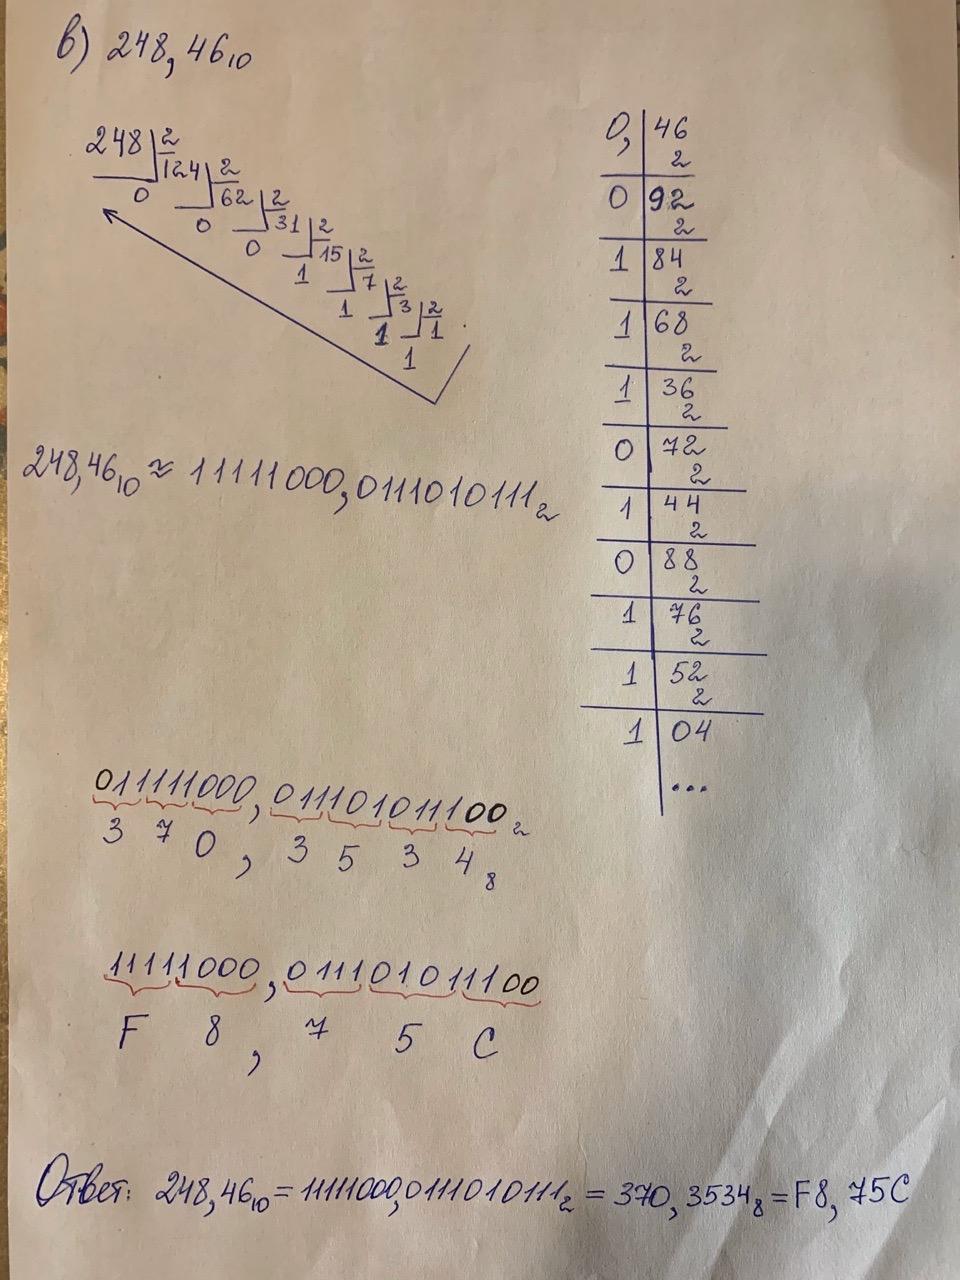 в) 248,46₁₀
248 2
124 2
0 62 2
0 31 2
0 15 2
1 7 2
1 3 2
1 1
1
0, 46
2
0 92
2
1 84
2
1 68
2
1 36
2
0 72
2
1 44
2
0 88
2
1 76
2
1 52
2
1 04
...
248,46₁₀ ≈ 11111000,0111010111₂
011111000, 011101011100₂
3 7 0, 3 5 3 4₈
11111000, 011101011100
F 8, 7 5 C
Ответ: 248,46₁₀ = 11111000,0111010111₂ = 370,3534₈ = F8,75C